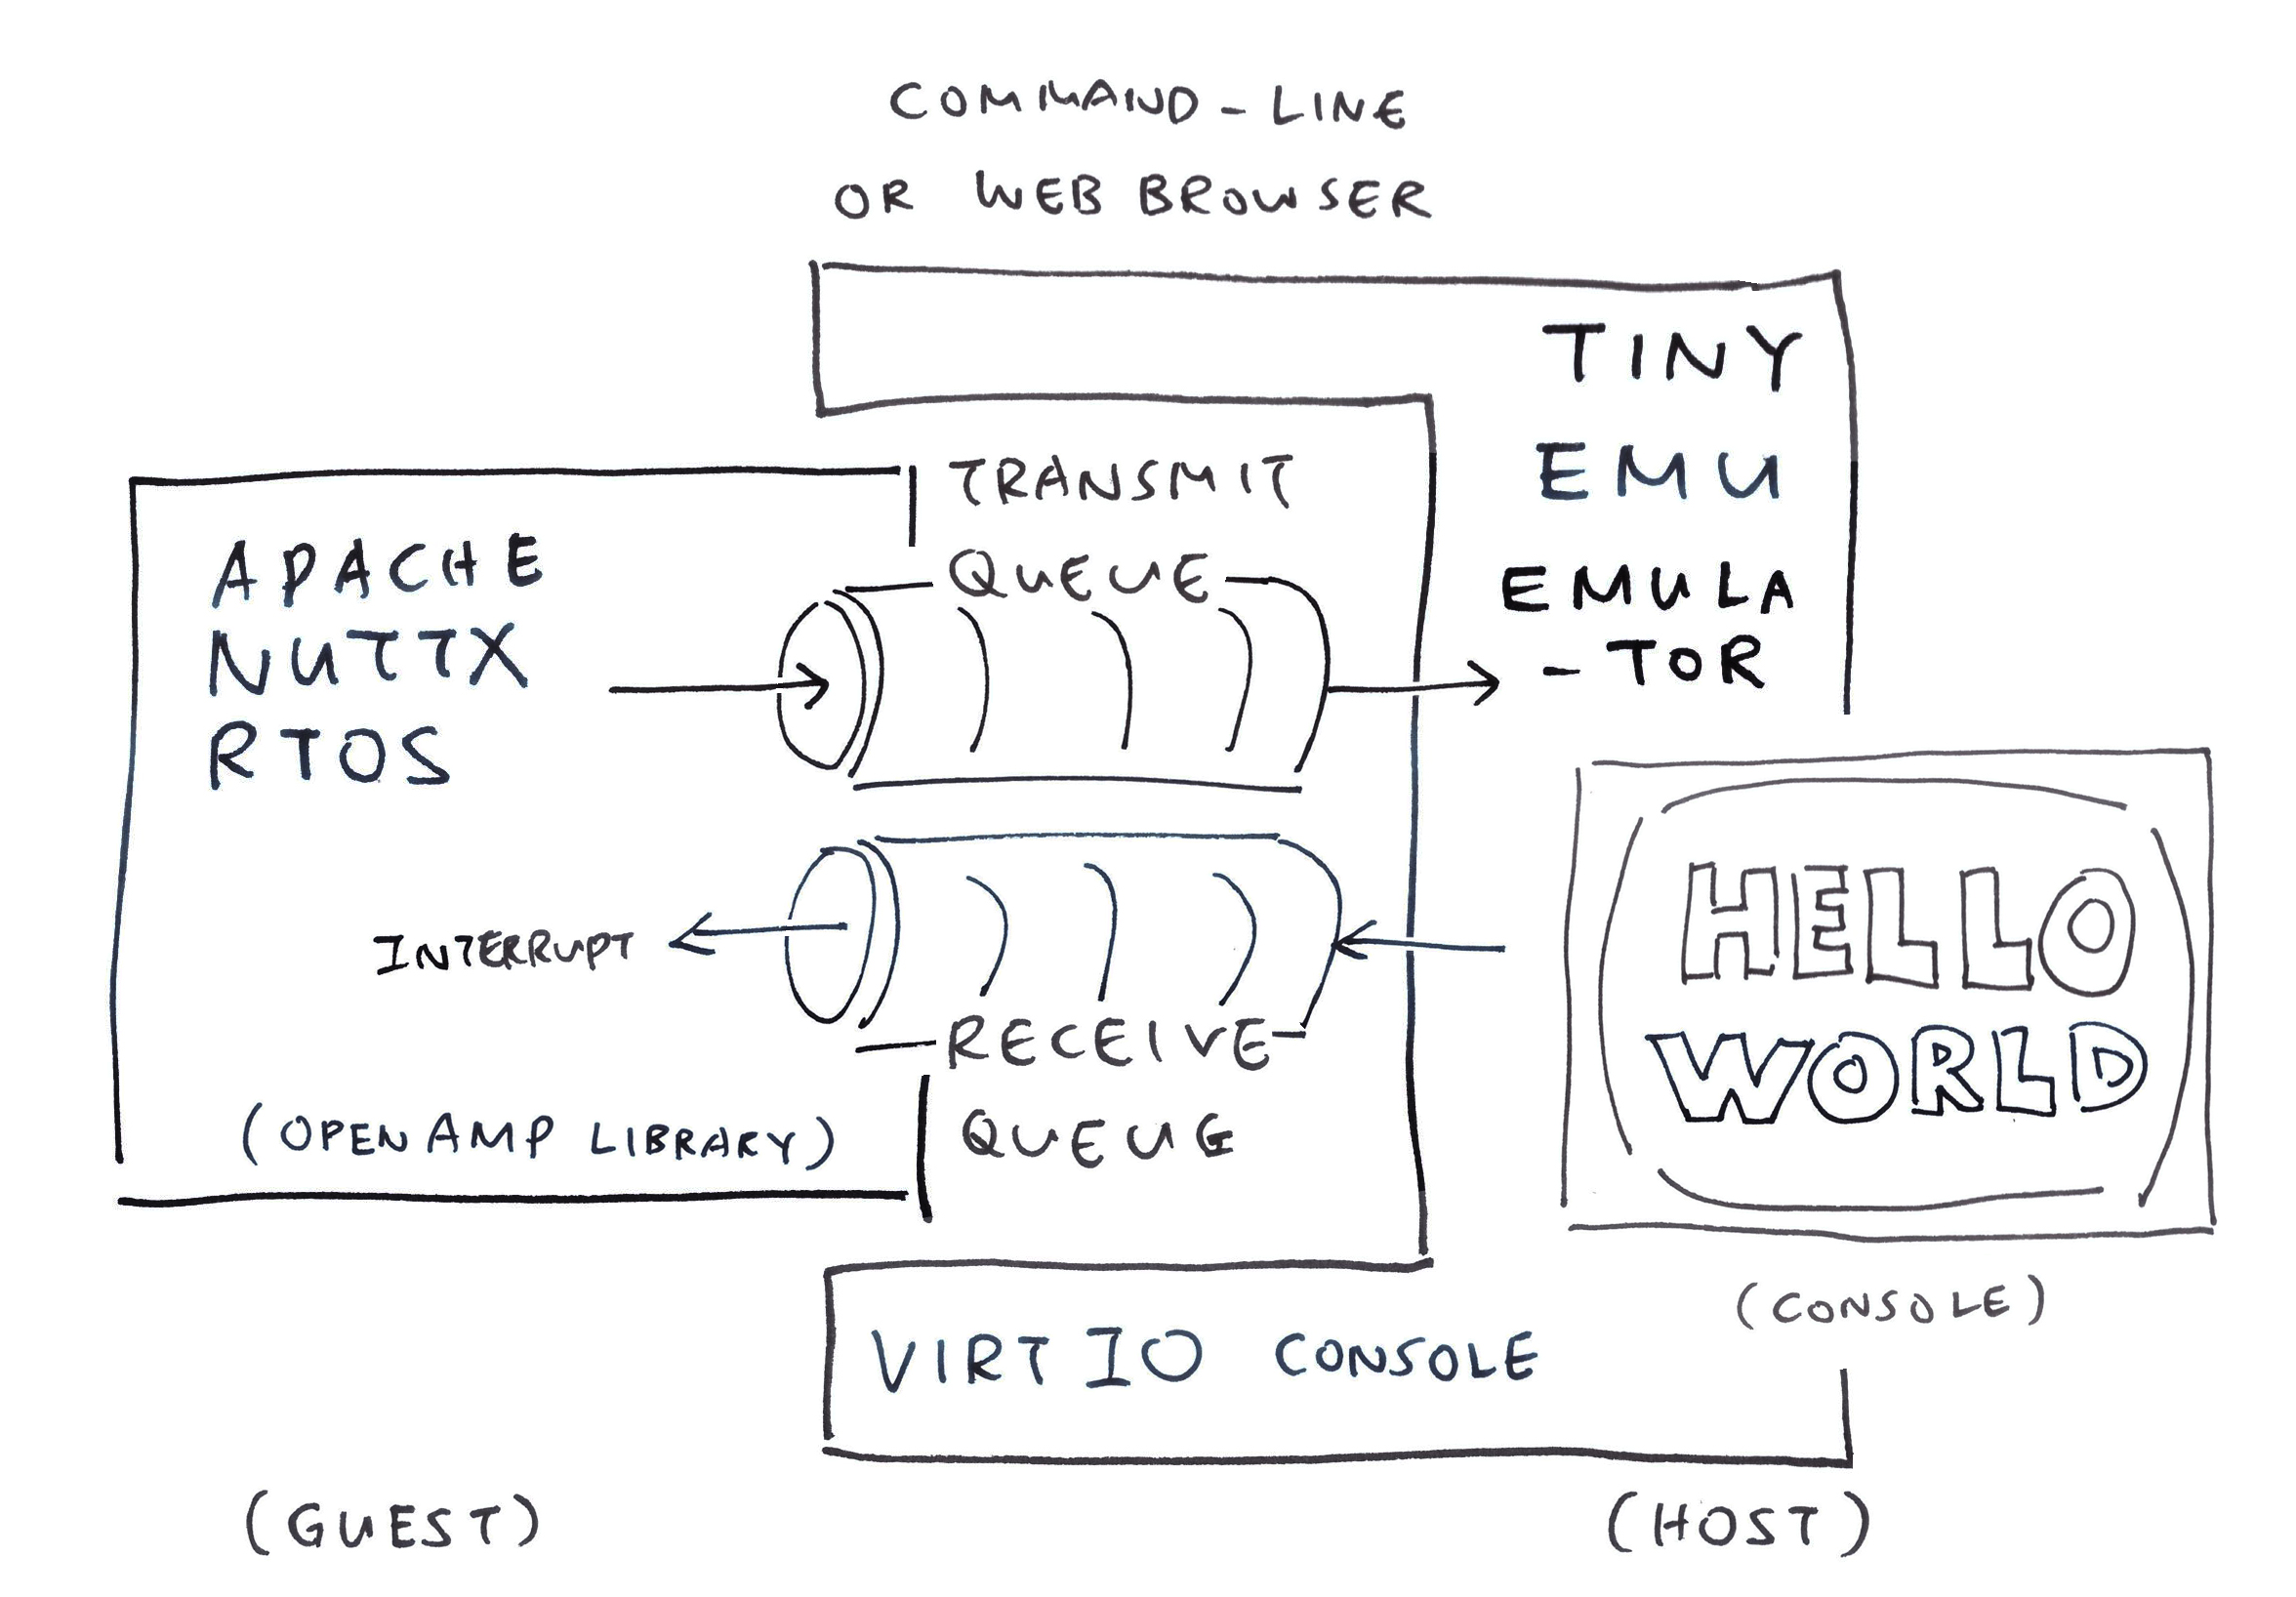 COMMAND-LINE
OR WEB BROWSER
TINY
EMU
EMULA
-TOR
TRANSMIT
QUEUE
APACHE
NUTTX
RTOS
INTERRUPT
RECEIVE
QUEUE
(OPENAMP LIBRARY)
HELLO
WORLD
(CONSOLE)
VIRTIO CONSOLE
(GUEST)
(HOST)